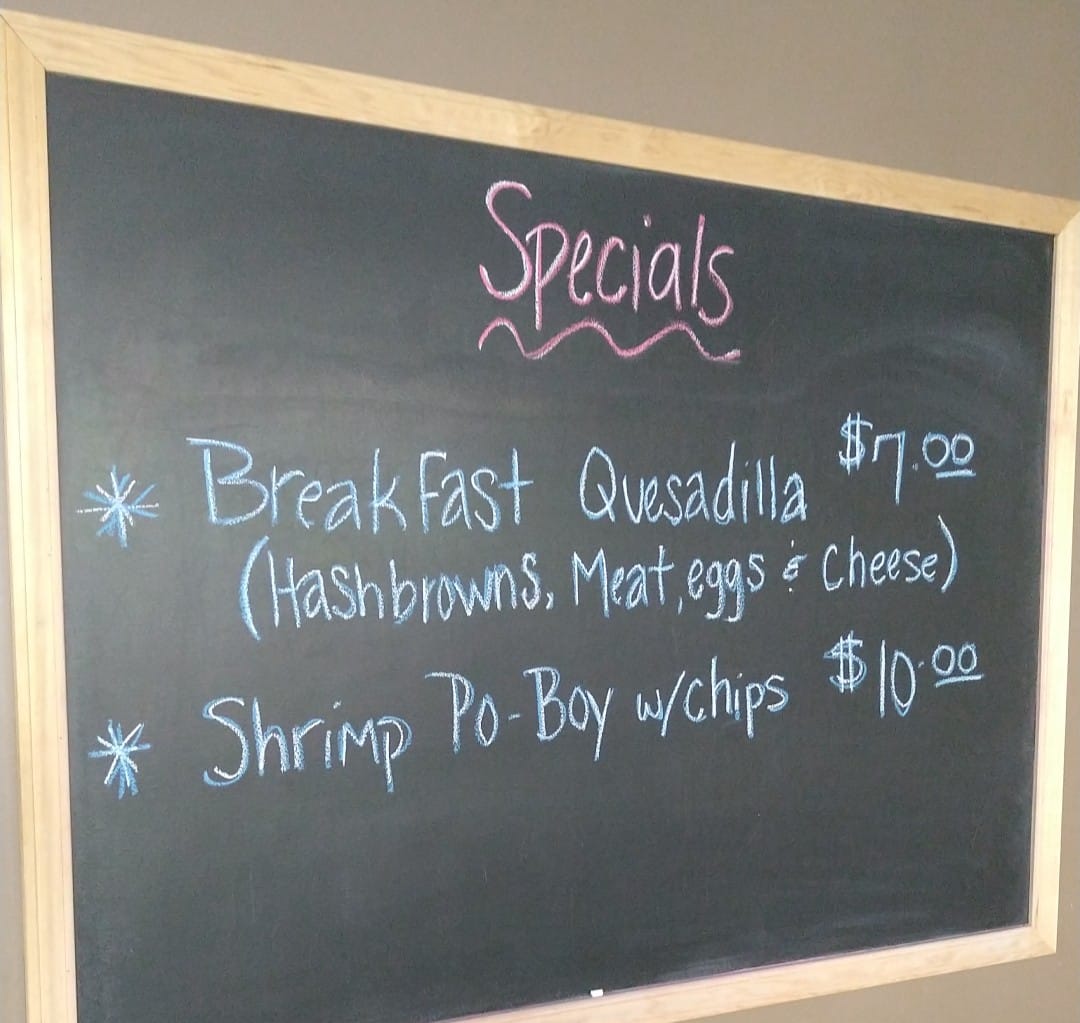 Specials
* Breakfast Quesadilla $7.00
(Hashbrowns, Meat, eggs & Cheese)
* Shrimp Po-Boy w/chips $10.00